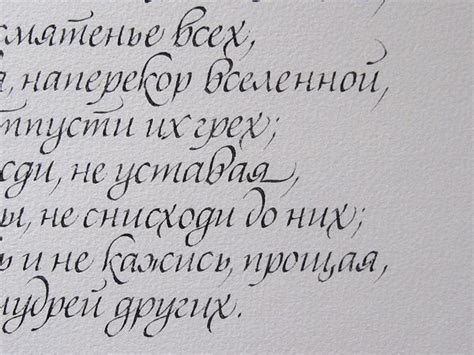 смятенье всех,
, наперекор вселенной,
тпусти их грех;
ди, не уставая,
ы, не снисходи до них;
ь и не кажись, прощая,
мудрей других.